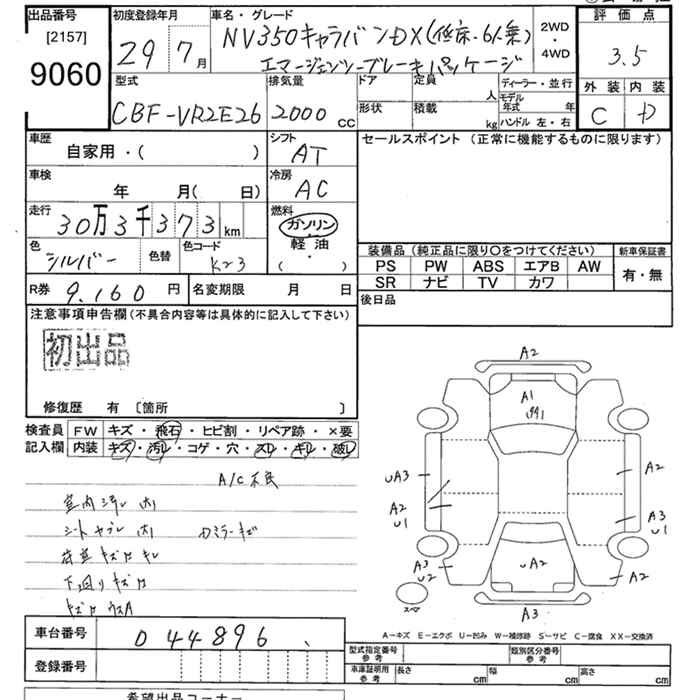 出品番号
[2157]
9060
初度登録年月
29年7月
車名・グレード
NV350キャラバンDX(低床・6人乗)
エマージェンシーブレーキパッケージ
2WD
・
4WD
評価点
3.5
外装 内装
C D
型式
CBF-VR2E26
排気量
2000 cc
ドア
定員
人
形状
積載
kg
ディーラー・並行
モデル年式 年
ハンドル 左・右
車歴
自家用・( )
シフト
AT
セールスポイント (正常に機能するものに限ります)
車検
年 月( 日)
冷房
AC
走行
30万3千373km
燃料
ガソリン
軽油
( )
色
シルバー
色替
色コード
K23
装備品(純正品に限り〇をつけてください)
新車保証書
PS PW ABS エアB AW
SR ナビ TV カワ
有・無
R券 9,160 円
名変期限 月 日
後日品
注意事項申告欄(不具合内容等は具体的に記入して下さい)
初出品
修復歴 有 [箇所 ]
検査員
記入欄
FW キズ・飛石・ヒビ割・リペア跡・×要
内装 キズ・汚レ・コゲ・穴・スレ・キレ・破レ
A/C不良
室内汚レ
シートヤブレ
Dミラーキズ
荷室
下回り
A2
A1
UA3
A2
U1
A2
A3
U1
A3
U2
UA2
A2
A3
スペア
A-キズ E-エクボ U-凹み W-補修跡 S-サビ C-腐食 XX-交換済
車台番号 044896
登録番号
型式指定番号
参考
類別区分番号
参考
車庫証明用
参考
長さ cm
幅 cm
高さ cm
希望出品コーナー